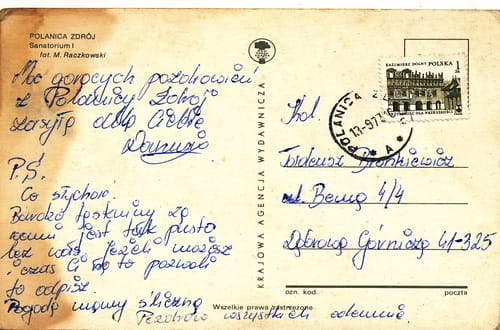 POLANICA ZDRÓJ
Sanatorium I
fot. M. Raczkowski
Moc gorących pozdrowień
z Polanicy Zdrój
zasyła dla Ciebie
Danusia
P.S.
Co słychać.
Bardzo tęsknimy za
wami jest tak pusto
bez was. Jeżeli możesz
i czas Ci na to pozwoli
to odpisz.
Pogodę mamy śliczną
Pozdrów wszystkich odemnie
KRAJOWA AGENCJA WYDAWNICZA
Wszelkie prawa zastrzeżone
KAZIMIERZ DOLNY POLSKA
1 zł
POLANICA
13-9.77
A
Kol.
Tadeusz Bronkiewicz
ul. Bema 4/4
Dąbrowa Górnicza 41-325
ozn. kod.
poczta